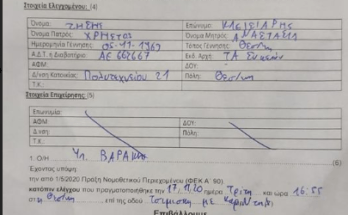 Στοιχεία Ελεγχομένου: (4)
Όνομα: ΖΗΣΗΣ Επώνυμο: ΚΛΕΙΣΙΑΡΗΣ
Όνομα Πατρός: ΧΡΗΣΤΟΣ Όνομα Μητρός: ΑΝΑΣΤΑΣΙΑ
Ημερομηνία Γέννησης: 05-11-1967 Τόπος Γέννησης: Θεσ/νικη
Α.Δ.Τ. ή Διαβατήριο: ΑΕ 662667 Εκδ. Αρχή: ΤΑ
ΑΦΜ: ΔΟΥ:
Δ/νση Κατοικίας: Πολυτεχνείου 21 Πόλη: Θεσ/νικη
Τ.Κ.:
Στοιχεία Επιχείρησης: (5)
Επωνυμία:
ΑΦΜ: ΔΟΥ:
Δ/νση: Πόλη:
Τ.Κ.:
1. Ο/Η
Έχοντας υπόψη
την από 1/5/2020 Πράξη Νομοθετικού Περιεχομένου (ΦΕΚ Α΄ 90)
κατόπιν ελέγχου που πραγματοποιήθηκε την 17.11.20 ημέρα Τρίτη και ώρα 16:55
στη Θεσ/νικη επί της οδού Τσιμισκή με
Επιβάλλουμε